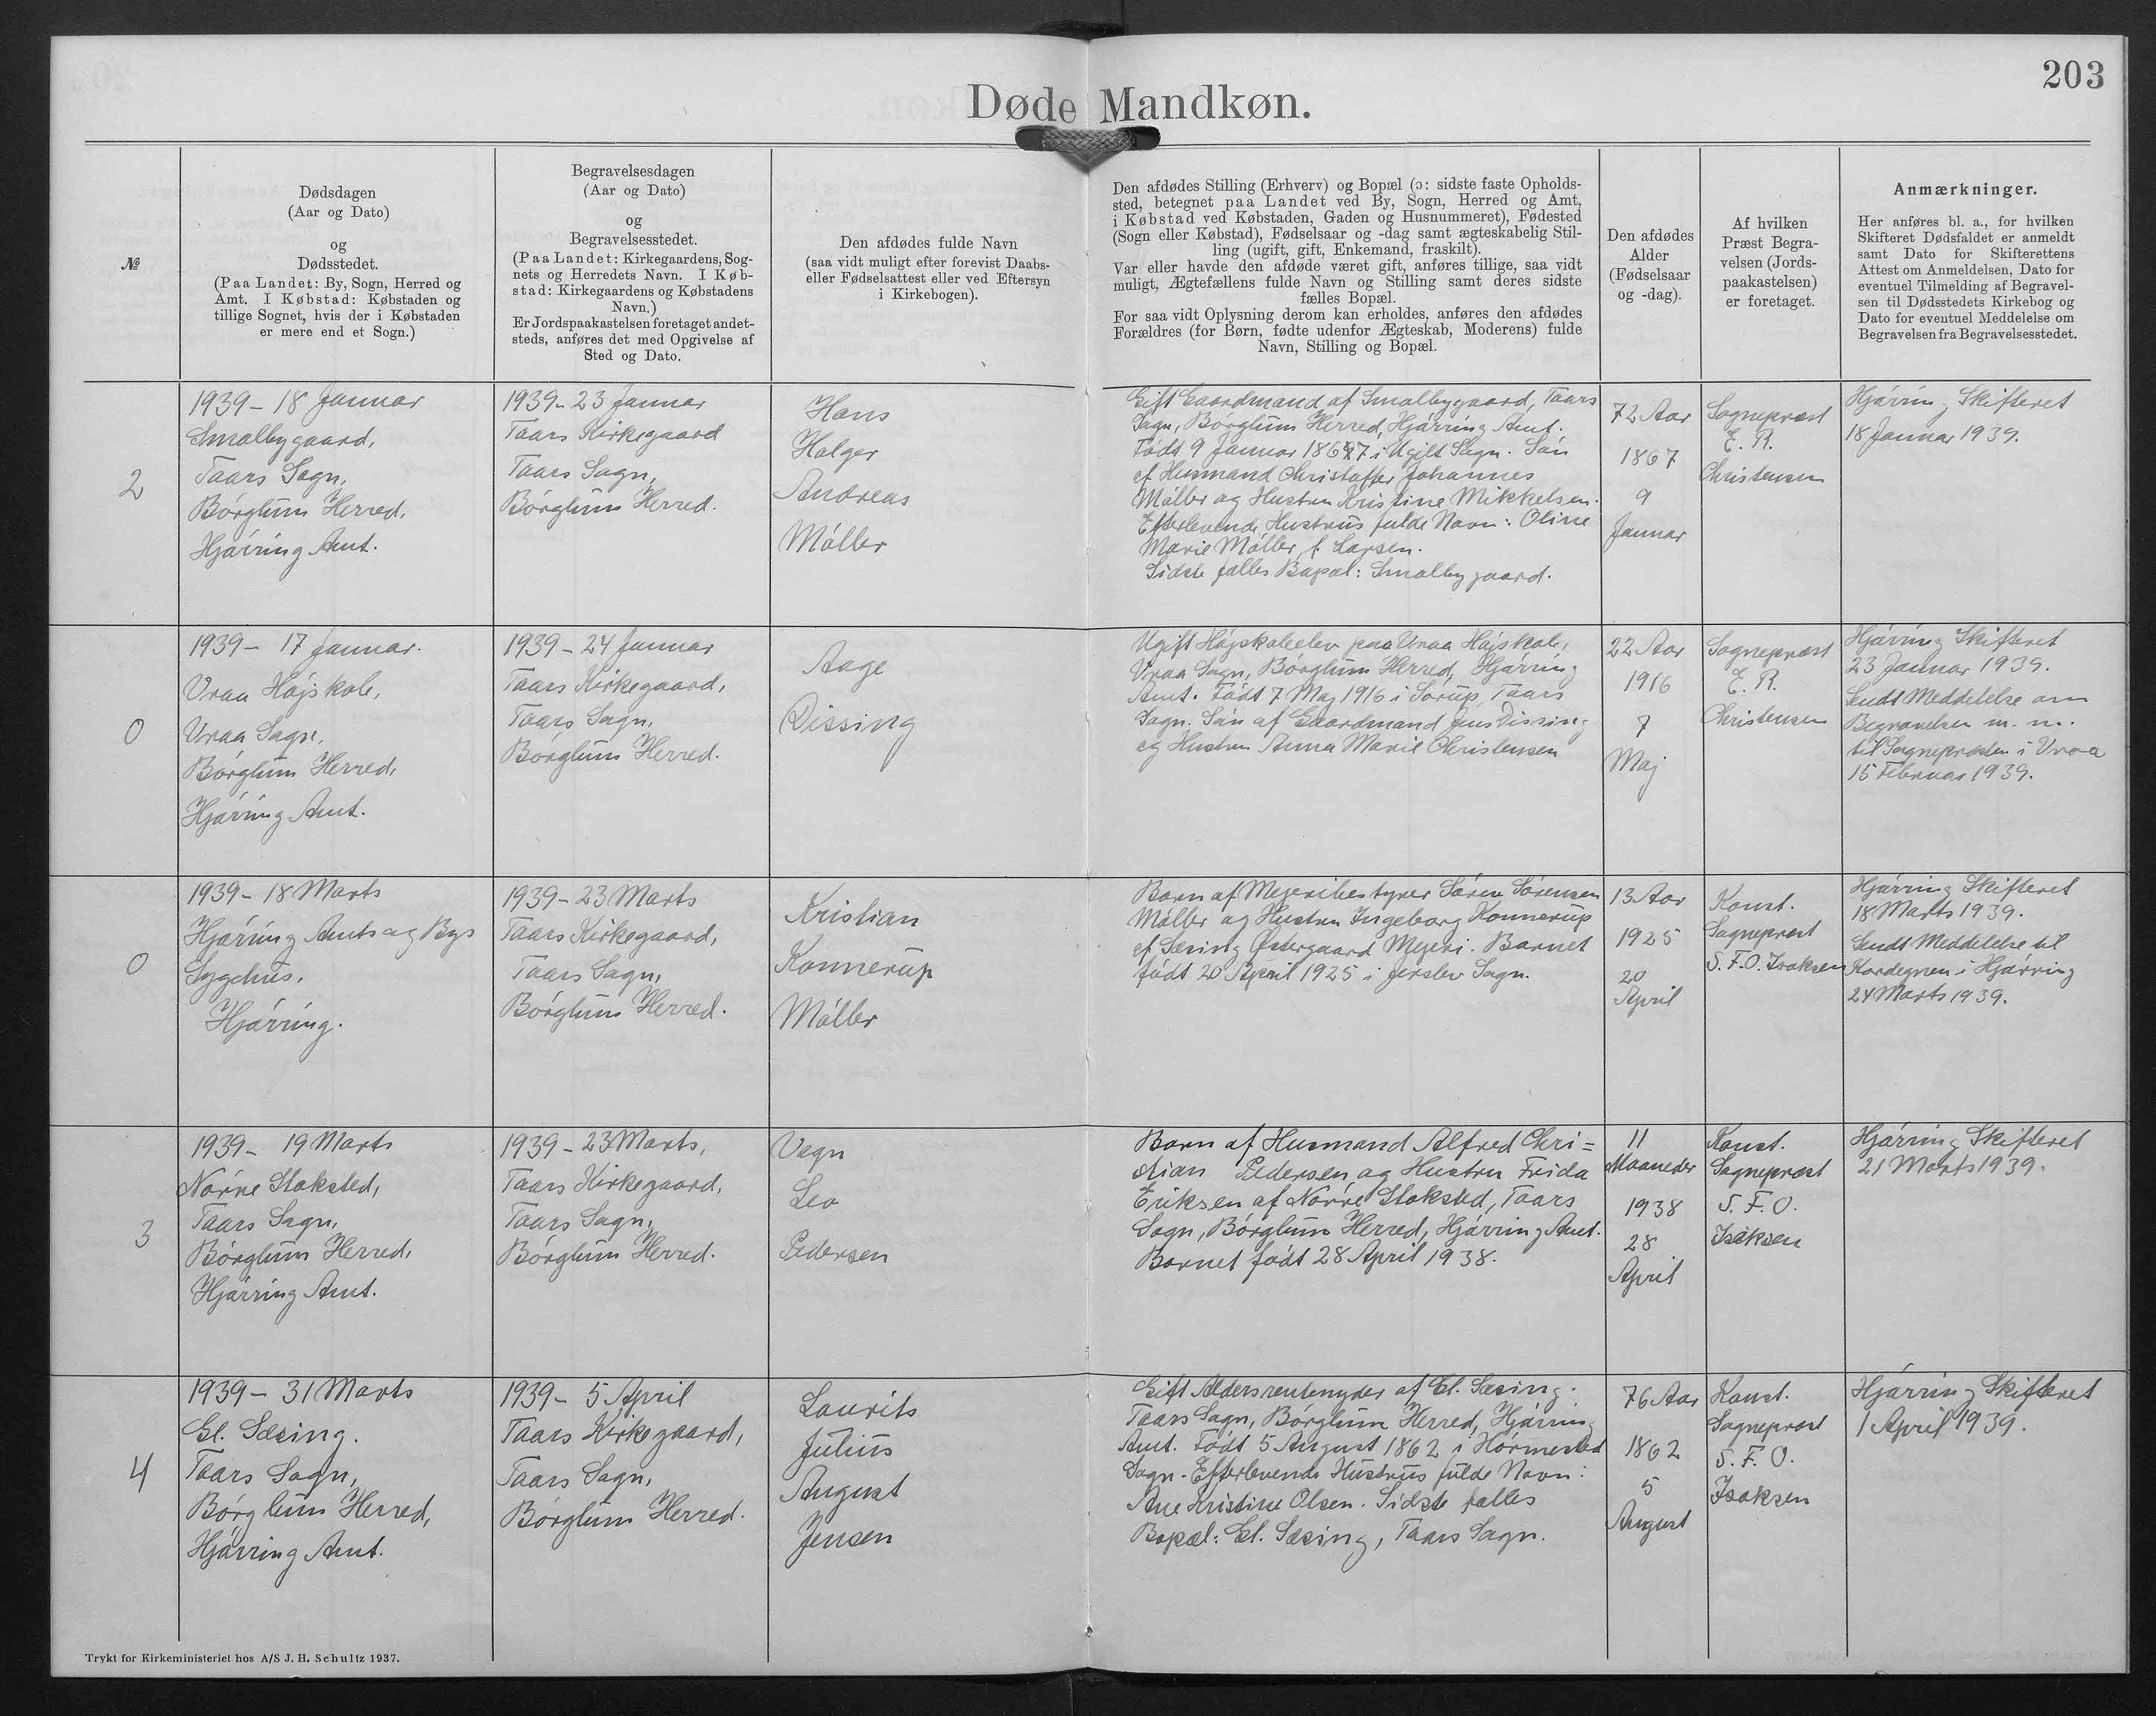 203
Døde Mandkøn.
№
Dødsdagen
(Aar og Dato)
og
Dødsstedet.
(Paa Landet: By, Sogn, Herred og
Amt. I Købstad: Købstaden og
tillige Sognet, hvis der i Købstaden
er mere end et Sogn.)
Begravelsesdagen
(Aar og Dato)
og
Begravelsesstedet.
(Paa Landet: Kirkegaardens, Sog-
nets og Herredets Navn. I Køb-
stad: Kirkegaardens og Købstadens
Navn.)
Er Jordspaakastelsen foretaget andet-
steds, anføres det med Opgivelse af
Sted og Dato.
Den afdødes fulde Navn
(saa vidt muligt efter forevist Daabs-
eller Fødselsattest eller ved Eftersyn
i Kirkebogen).
Den afdødes Stilling (Erhverv) og Bopæl (ɔ: sidste faste Opholds-
sted, betegnet paa Landet ved By, Sogn, Herred og Amt,
i Købstad ved Købstaden, Gaden og Husnummeret), Fødested
(Sogn eller Købstad), Fødselsaar og -dag samt ægteskabelig Stil-
ling (ugift, gift, Enkemand, fraskilt).
Var eller havde den afdøde været gift, anføres tillige, saa vidt
muligt, Ægtefællens fulde Navn og Stilling samt deres sidste
fælles Bopæl.
For saa vidt Oplysning derom kan erholdes, anføres den afdødes
Forældres (for Børn, fødte udenfor Ægteskab, Moderens) fulde
Navn, Stilling og Bopæl.
Den afdødes
Alder
(Fødselsaar
og -dag).
Af hvilken
Præst Begra-
velsen (Jords-
paakastelsen)
er foretaget.
Anmærkninger.
Her anføres bl. a., for hvilken
Skifteret Dødsfaldet er anmeldt
samt Dato for Skifterettens
Attest om Anmeldelsen, Dato for
eventuel Tilmelding af Begravel-
sen til Dødsstedets Kirkebog og
Dato for eventuel Meddelelse om
Begravelsen fra Begravelsesstedet.
2
1939 - 18 Januar
Smalbygaard,
Taars Sogn,
Børglum Herred,
Hjørring Amt.
1939 - 23 Januar
Taars Kirkegaard
Taars Sogn,
Børglum Herred.
Hans
Holger
Andreas
Møller
Gift Gaardmand af Smalbygaard, Taars
Sogn, Børglum Herred, Hjørring Amt.
Født 9 Januar 1867 i Ugilt Sogn. Søn
af Husmand Christoffer Johannes
Møller og Hustru Kristine Mikkelsen.
Efterlevende Hustrus fulde Navn: Oline
Marie Møller f. Larsen.
Sidste fælles Bopæl: Smalbygaard.
72 Aar
1867
9
Januar
Sognepræst
E. R.
Christensen
Hjørring Skifteret
18 Januar 1939.
0
1939 - 17 Januar.
Vraa Højskole,
Vraa Sogn,
Børglum Herred,
Hjørring Amt.
1939 - 24 Januar
Taars Kirkegaard,
Taars Sogn,
Børglum Herred.
Aage
Dissing
Ugift Højskoleelev paa Vraa Højskole,
Vraa Sogn, Børglum Herred, Hjørring
Amt. Født 7 Maj 1916 i Sørup, Taars
Sogn. Søn af Gaardmand Jens Dissing
og Hustru Anna Marie Christensen
22 Aar
1916
7
Maj
Sognepræst
E. R.
Christensen
Hjørring Skifteret
23 Januar 1939.
Sendt Meddelelse om
Begravelsen m. m.
til Sognepræsten i Vraa
15 Februar 1939.
0
1939 - 18 Marts
Hjørring Amts og Bys
Sygehus,
Hjørring.
1939 - 23 Marts
Taars Kirkegaard,
Taars Sogn,
Børglum Herred.
Kristian
Konnerup
Møller
Barn af Mejeribestyrer Søren Sørensen
Møller og Hustru Ingeborg Konnerup
af Sæsing Østergaard Mejeri. Barnet
født 20 April 1925 i Jerslev Sogn.
13 Aar
1925
20
April
Konst.
Sognepræst
S. F. O. Isaksen
Hjørring Skifteret
18 Marts 1939.
Sendt Meddelelse til
Kordegnen i Hjørring
24 Marts 1939.
3
1939 - 19 Marts
Nørre Stoksted,
Taars Sogn,
Børglum Herred,
Hjørring Amt.
1939 - 23 Marts,
Taars Kirkegaard,
Taars Sogn,
Børglum Herred.
Vagn
Leo
Pedersen
Barn af Husmand Alfred Chri=
stian Pedersen og Hustru Frida
Eriksen af Nørre Stoksted, Taars
Sogn, Børglum Herred, Hjørring Amt.
Barnet født 28 April 1938.
11
Maaneder
1938
28
April
Konst.
Sognepræst
S. F. O.
Isaksen
Hjørring Skifteret
21 Marts 1939.
4
1939 - 31 Marts
Gl. Sæsing.
Taars Sogn,
Børglum Herred,
Hjørring Amt.
1939 - 5 April
Taars Kirkegaard,
Taars Sogn,
Børglum Herred.
Laurits
Julius
August
Jensen
Gift Aldersrentenyder af Gl. Sæsing.
Taars Sogn, Børglum Herred, Hjørring
Amt. Født 5 August 1862 i Hørmested
Sogn. Efterlevende Hustrus fulde Navn:
Ane Kristine Olsen. Sidste fælles
Bopæl: Gl. Sæsing, Taars Sogn.
76 Aar
1862
5
August
Konst.
Sognepræst
S. F. O.
Isaksen
Hjørring Skifteret
1 April 1939.
Trykt for Kirkeministeriet hos A/S J. H. Schultz 1937.